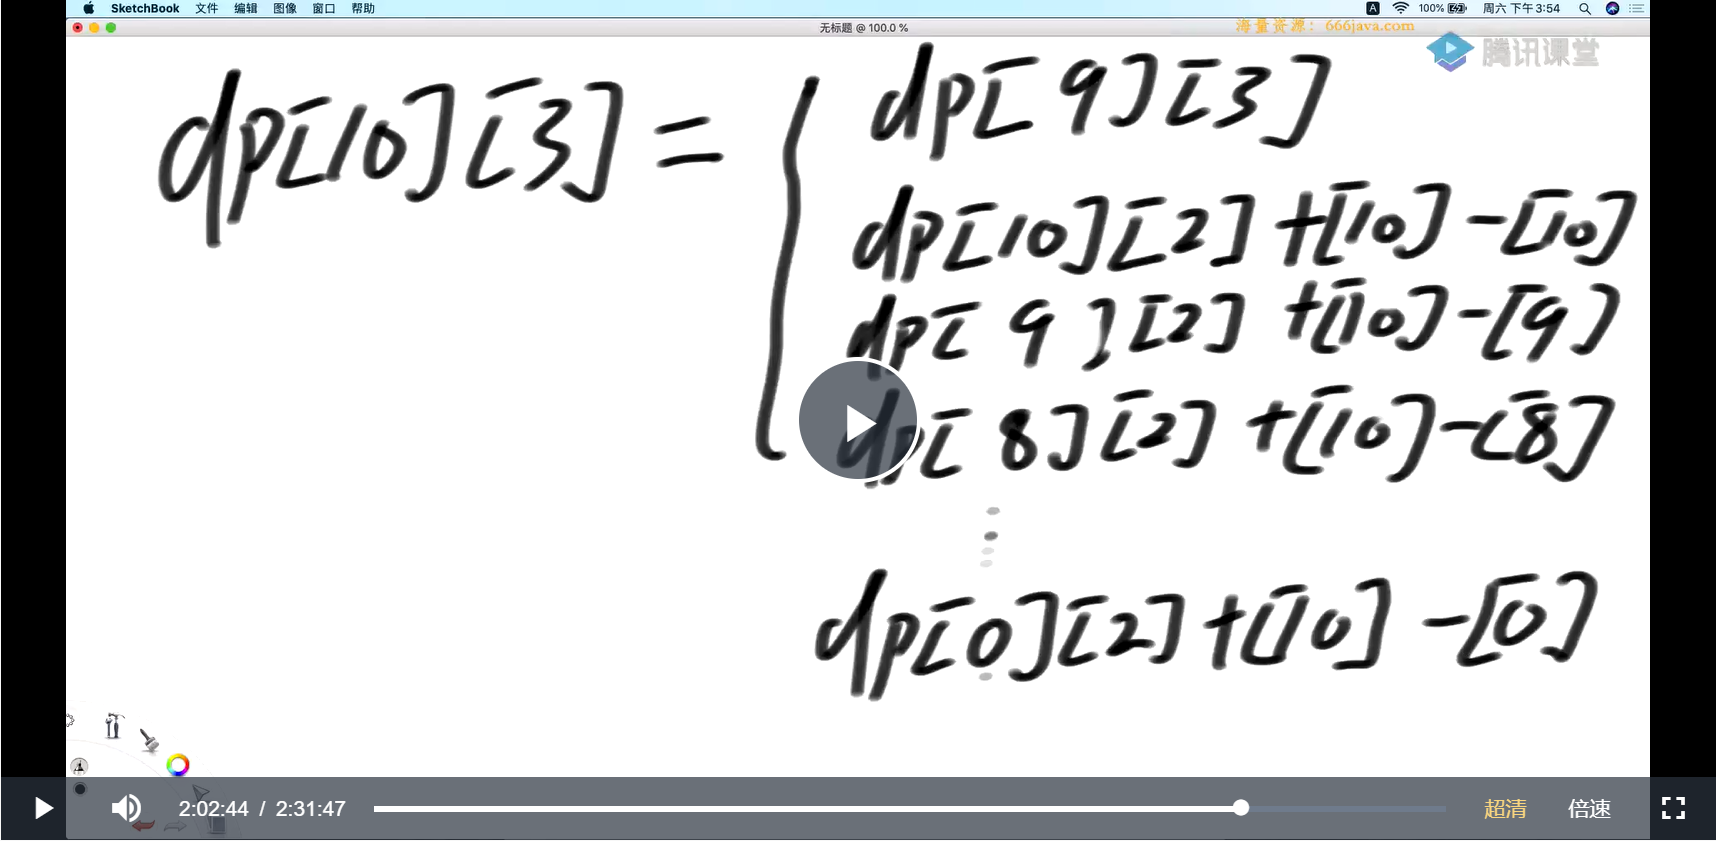 SketchBook 文件 编辑 图像 窗口 帮助 A 100% 周六 下午3:54
无标题 @ 100.0 %
海量资源：666java.com
腾讯课堂
dp[10][3] =
dp[9][3]
dp[10][2] +[10] -[10]
dp[9][2] +[10] -[9]
dp[8][2] +[10] -[8]
dp[0][2] +[10] -[0]
2:02:44 / 2:31:47 超清 倍速